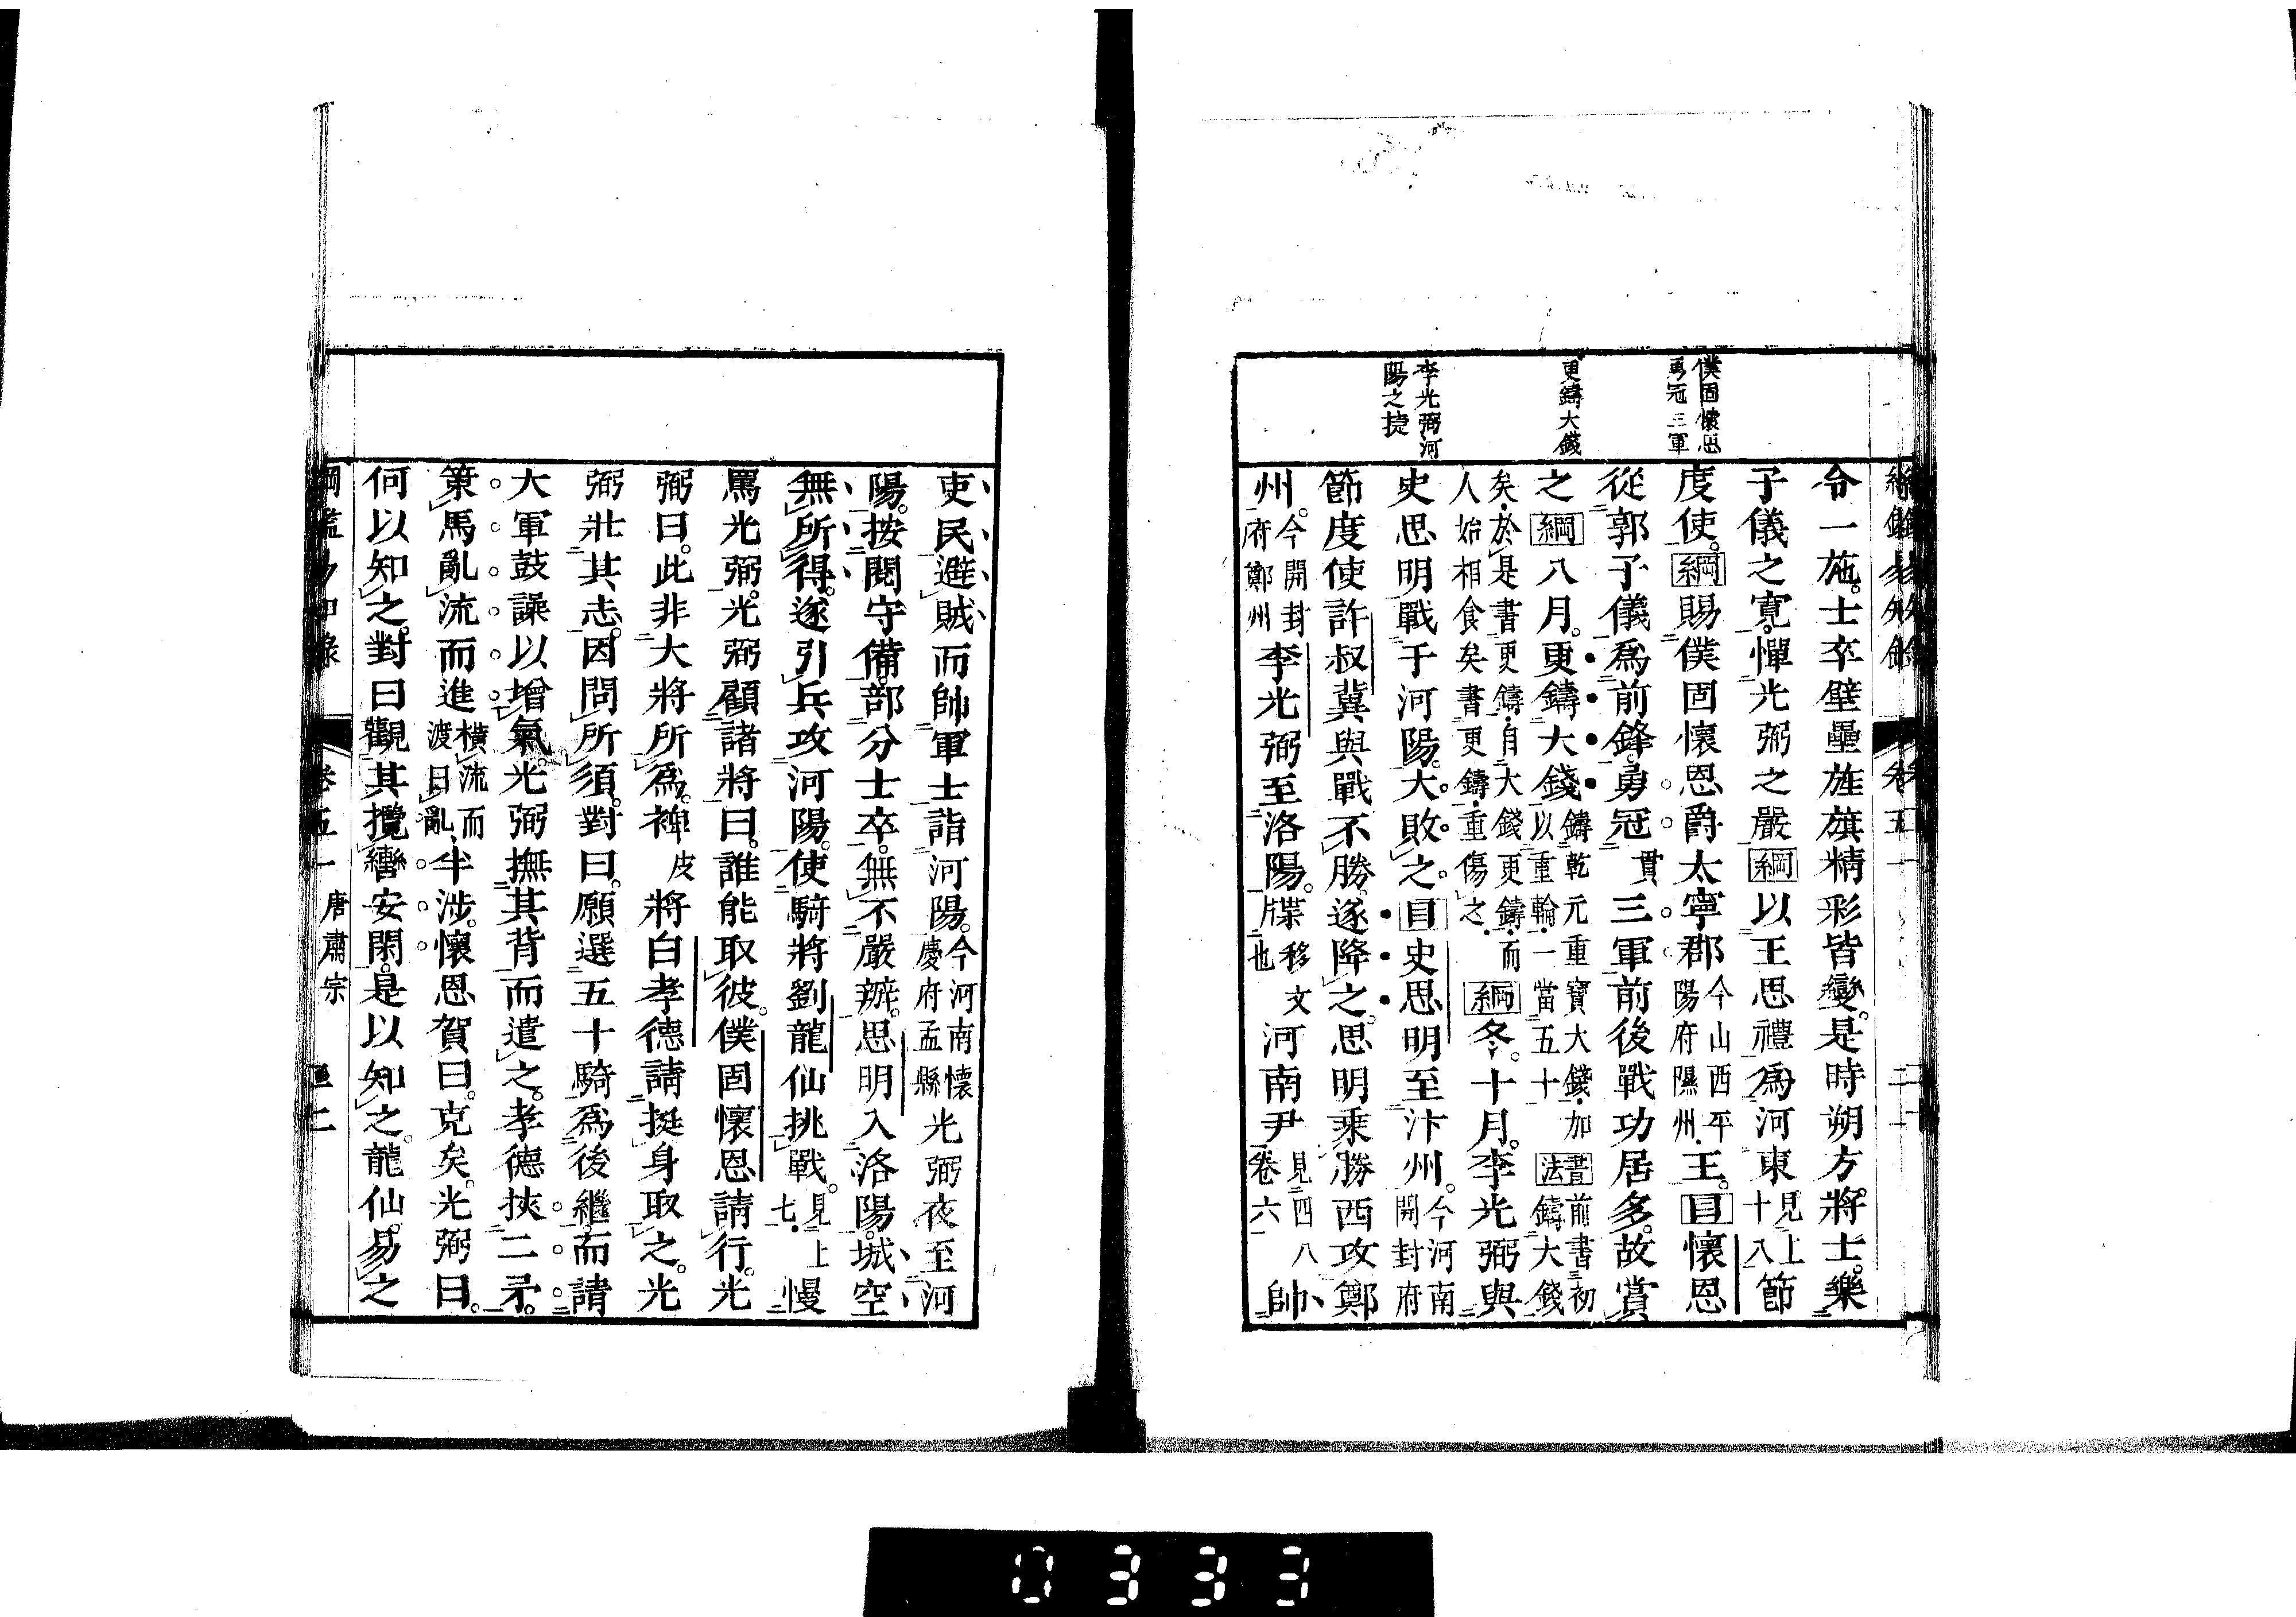 僕固懷恩
勇冠三軍
更鑄大錢
李光弼河
陽之捷
令一施。士卒壁壘旌旗精彩皆變。是時朔方將士。樂
子儀之寬。憚光弼之嚴綱以王思禮爲河東見上十八節
度使。綱賜僕固懷恩爵太寧郡今山西平陽府隰州王。目懷恩
從郭子儀爲前鋒。勇冠貫三軍前後戰功居多。故賞
之綱八月。更鑄大錢鑄乾元重寶大錢加以重輪一當五十書法前書初鑄大錢
矣於是書更鑄自大錢更鑄而人始相食矣書更鑄重傷之綱冬。十月。李光弼與
史思明戰于河陽。大敗之。目史思明至汴州。今河南開封府
節度使許叔冀與戰不勝。遂降之。思明乘勝西攻鄭
州。今開封府鄭州李光弼至洛陽。牒移文也河南尹見四八卷六帥
吏民避賊而帥軍士詣河陽。今河南懷慶府孟縣光弼夜至河
陽。按閱守備。部分士卒。無不嚴辦。思明入洛陽。城空
無所得。遂引兵攻河陽。使騎將劉龍仙挑戰。見上七慢
罵光弼。光弼顧諸將曰。誰能取彼。僕固懷恩請行。光
弼曰。此非大將所爲。裨皮將白孝德請挺身取之。光
弼壯其志。因問所須。對曰。願選五十騎爲後繼。而請
大軍鼓譟以增氣。光弼撫其背而遣之。孝德挾二矛。
策馬亂流而進橫流而渡曰亂半涉。懷恩賀曰。克矣。光弼曰。
何以知之。對曰觀其攬轡安閑。是以知之。龍仙。易之
綱鑑易知錄 卷五一 唐肅宗